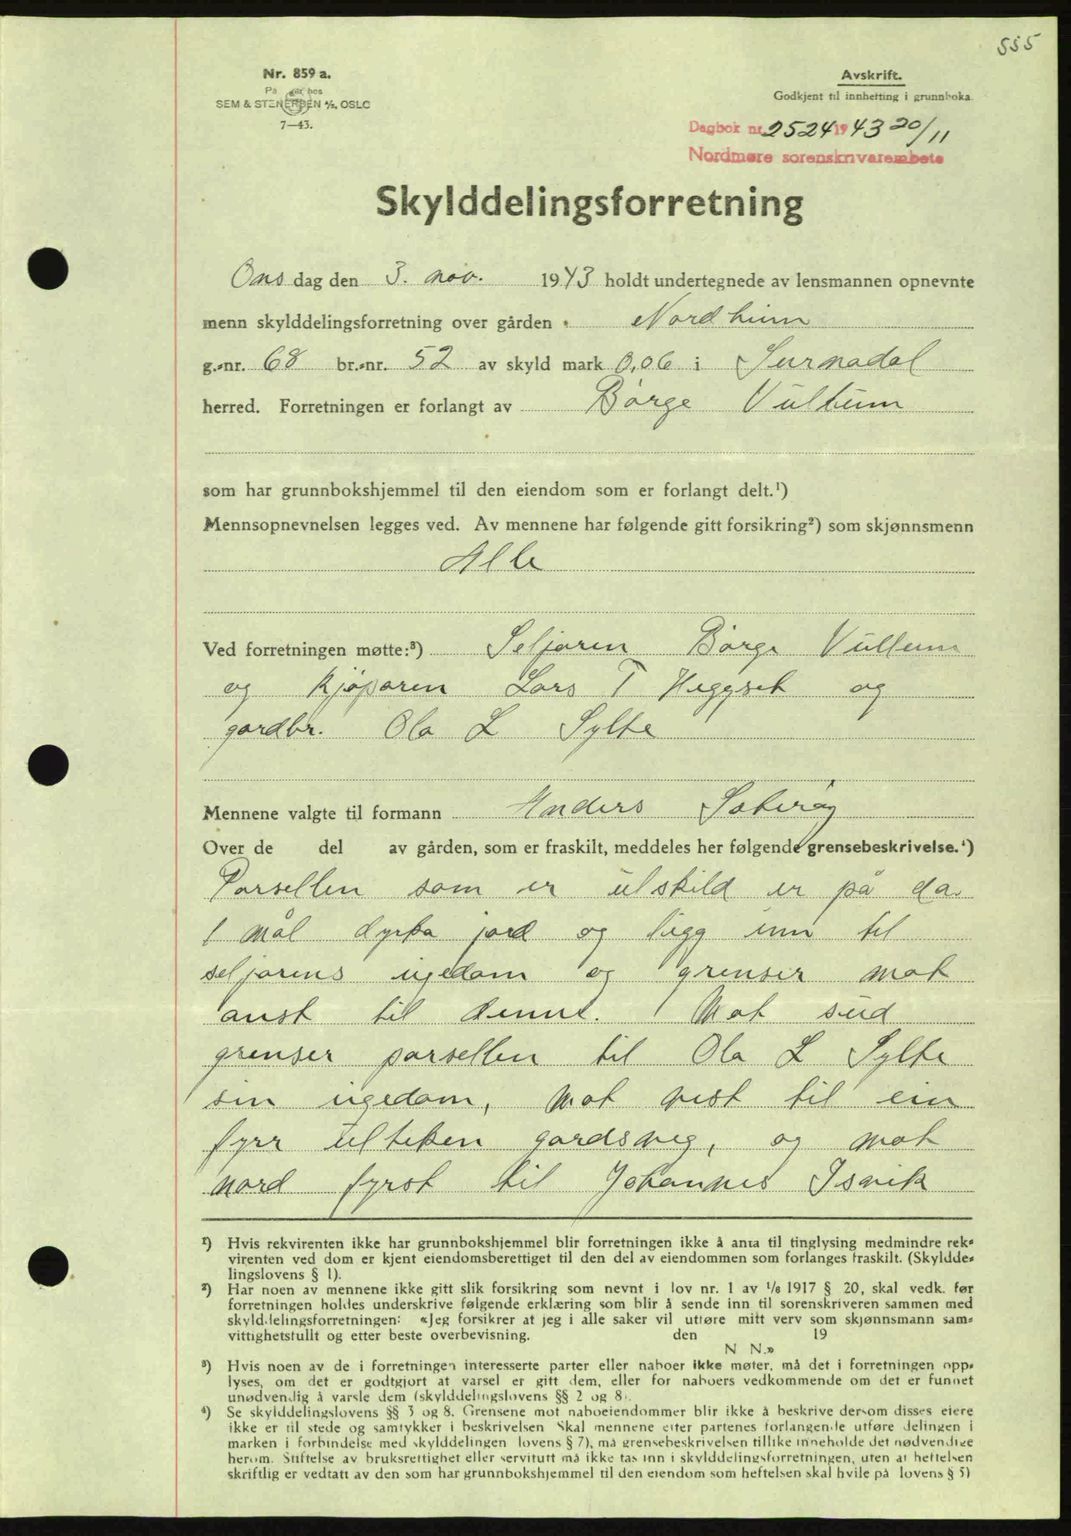 555
Nr. 859 a.
På lager hos
SEM & STENERSEN A/S, OSLO
7—43.
Avskrift.
Godkjent til innhefting i grunnboka.
Dagbok nr. 2524 1943 20/11
Nordmøre sorenskrivarembete
Skylddelingsforretning
Ons dag den 3. nov. 1943 holdt undertegnede av lensmannen opnevnte
menn skylddelingsforretning over gården Nordheim
g.-nr. 68 br.-nr. 52 av skyld mark 0,06 i Surnadal
herred. Forretningen er forlangt av Børge Vullum
som har grunnbokshjemmel til den eiendom som er forlangt delt.¹)
Mennsopnevnelsen legges ved. Av mennene har følgende gitt forsikring²) som skjønnsmenn
Alle
Ved forretningen møtte:³) Seljaren Børge Vullum
og kjøparen Lars T Heggset og
gardbr. Ola L Sylte
Mennene valgte til formann Anders Sæterøy
Over de del av gården, som er fraskilt, meddeles her følgende grensebeskrivelse.⁴)
Parsellen som er utskild er på ca.
1 mål dyrka jord og ligg inn til
seljarens eigedom og grenser mot
aust til denne. Mot sud
grenser parsellen til Ola L Sylte
sin eigedom, mot vest til ein
fyrr utteken gardsveg, og mot
nord fyrst til Johannes Isvik
¹) Hvis rekvirenten ikke har grunnbokshjemmel blir forretningen ikke å anta til tinglysing medmindre rek-
virenten ved dom er kjent eiendomsberettiget til den del av eiendommen som forlanges fraskilt. (Skyldde-
lingslovens § 1).
²) Har noen av mennene ikke gitt slik forsikring som nevnt i lov nr. 1 av 1/6 1917 § 20, skal vedk. før
forretningen holdes underskrive følgende erklæring som blir å sende inn til sorenskriveren sammen med
skylddelingsforretningen: «Jeg forsikrer at jeg i alle saker vil utføre mitt verv som skjønnsmann sam-
vittighetsfullt og etter beste overbevisning. den 19
N N.»
³) Hvis noen av de i forretningen interesserte parter eller naboer ikke møter, må det i forretningen opp-
lyses, om det er godtgjort at varsel er gitt dem, eller for naboers vedkommende om det er funnet
unødvendig å varsle dem (skylddelingslovens §§ 2 og 8).
⁴) Se skylddelingslovens §§ 3 og 8. Grensene mot naboeiendommer blir ikke å beskrive dersom disses eiere
ikke er til stede og samtykker i beskrivelsen Skal mennene etter partenes forlangende utføre delingen i
marken i forbindelse med skylddelingen lovens § 7), må grensebeskrivelsen tillike inneholde det nødvendige
herom. Stiftelse av bruksrettighet eller servitutt må ikke tas inn i skylddelingsforretningen, uten at heftelsen
skriftlig er vedtatt av den som har grunnbokshjemmel til den eiendom som heftelsen skal hvile på lovens § 5)